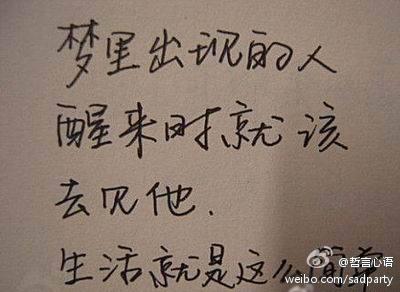 梦里出现的人
醒来时就该
去见他.
生活就是这么简单
@哲言心语
weibo.com/sadparty